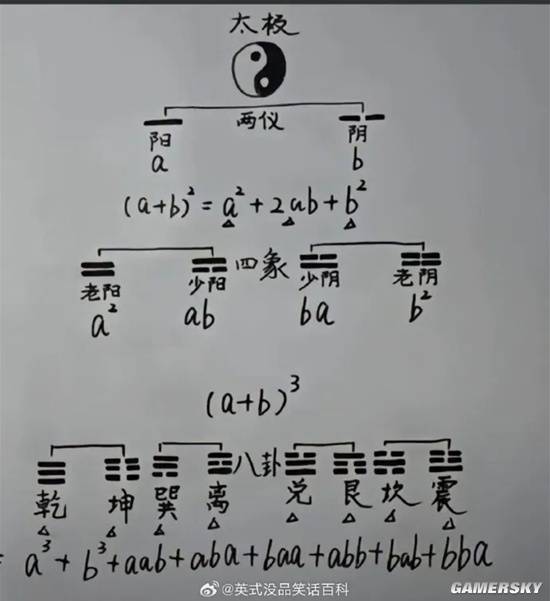 太极
两仪
阳 阴
a b
(a+b)² = a² + 2ab + b²
四象
老阳 少阳 少阴 老阴
a² ab ba b²
(a+b)³
八卦
乾 坤 巽 离 兑 艮 坎 震
= a³ + b³ + aab + aba + baa + abb + bab + bba
@英式没品笑话百科
GAMERSKY